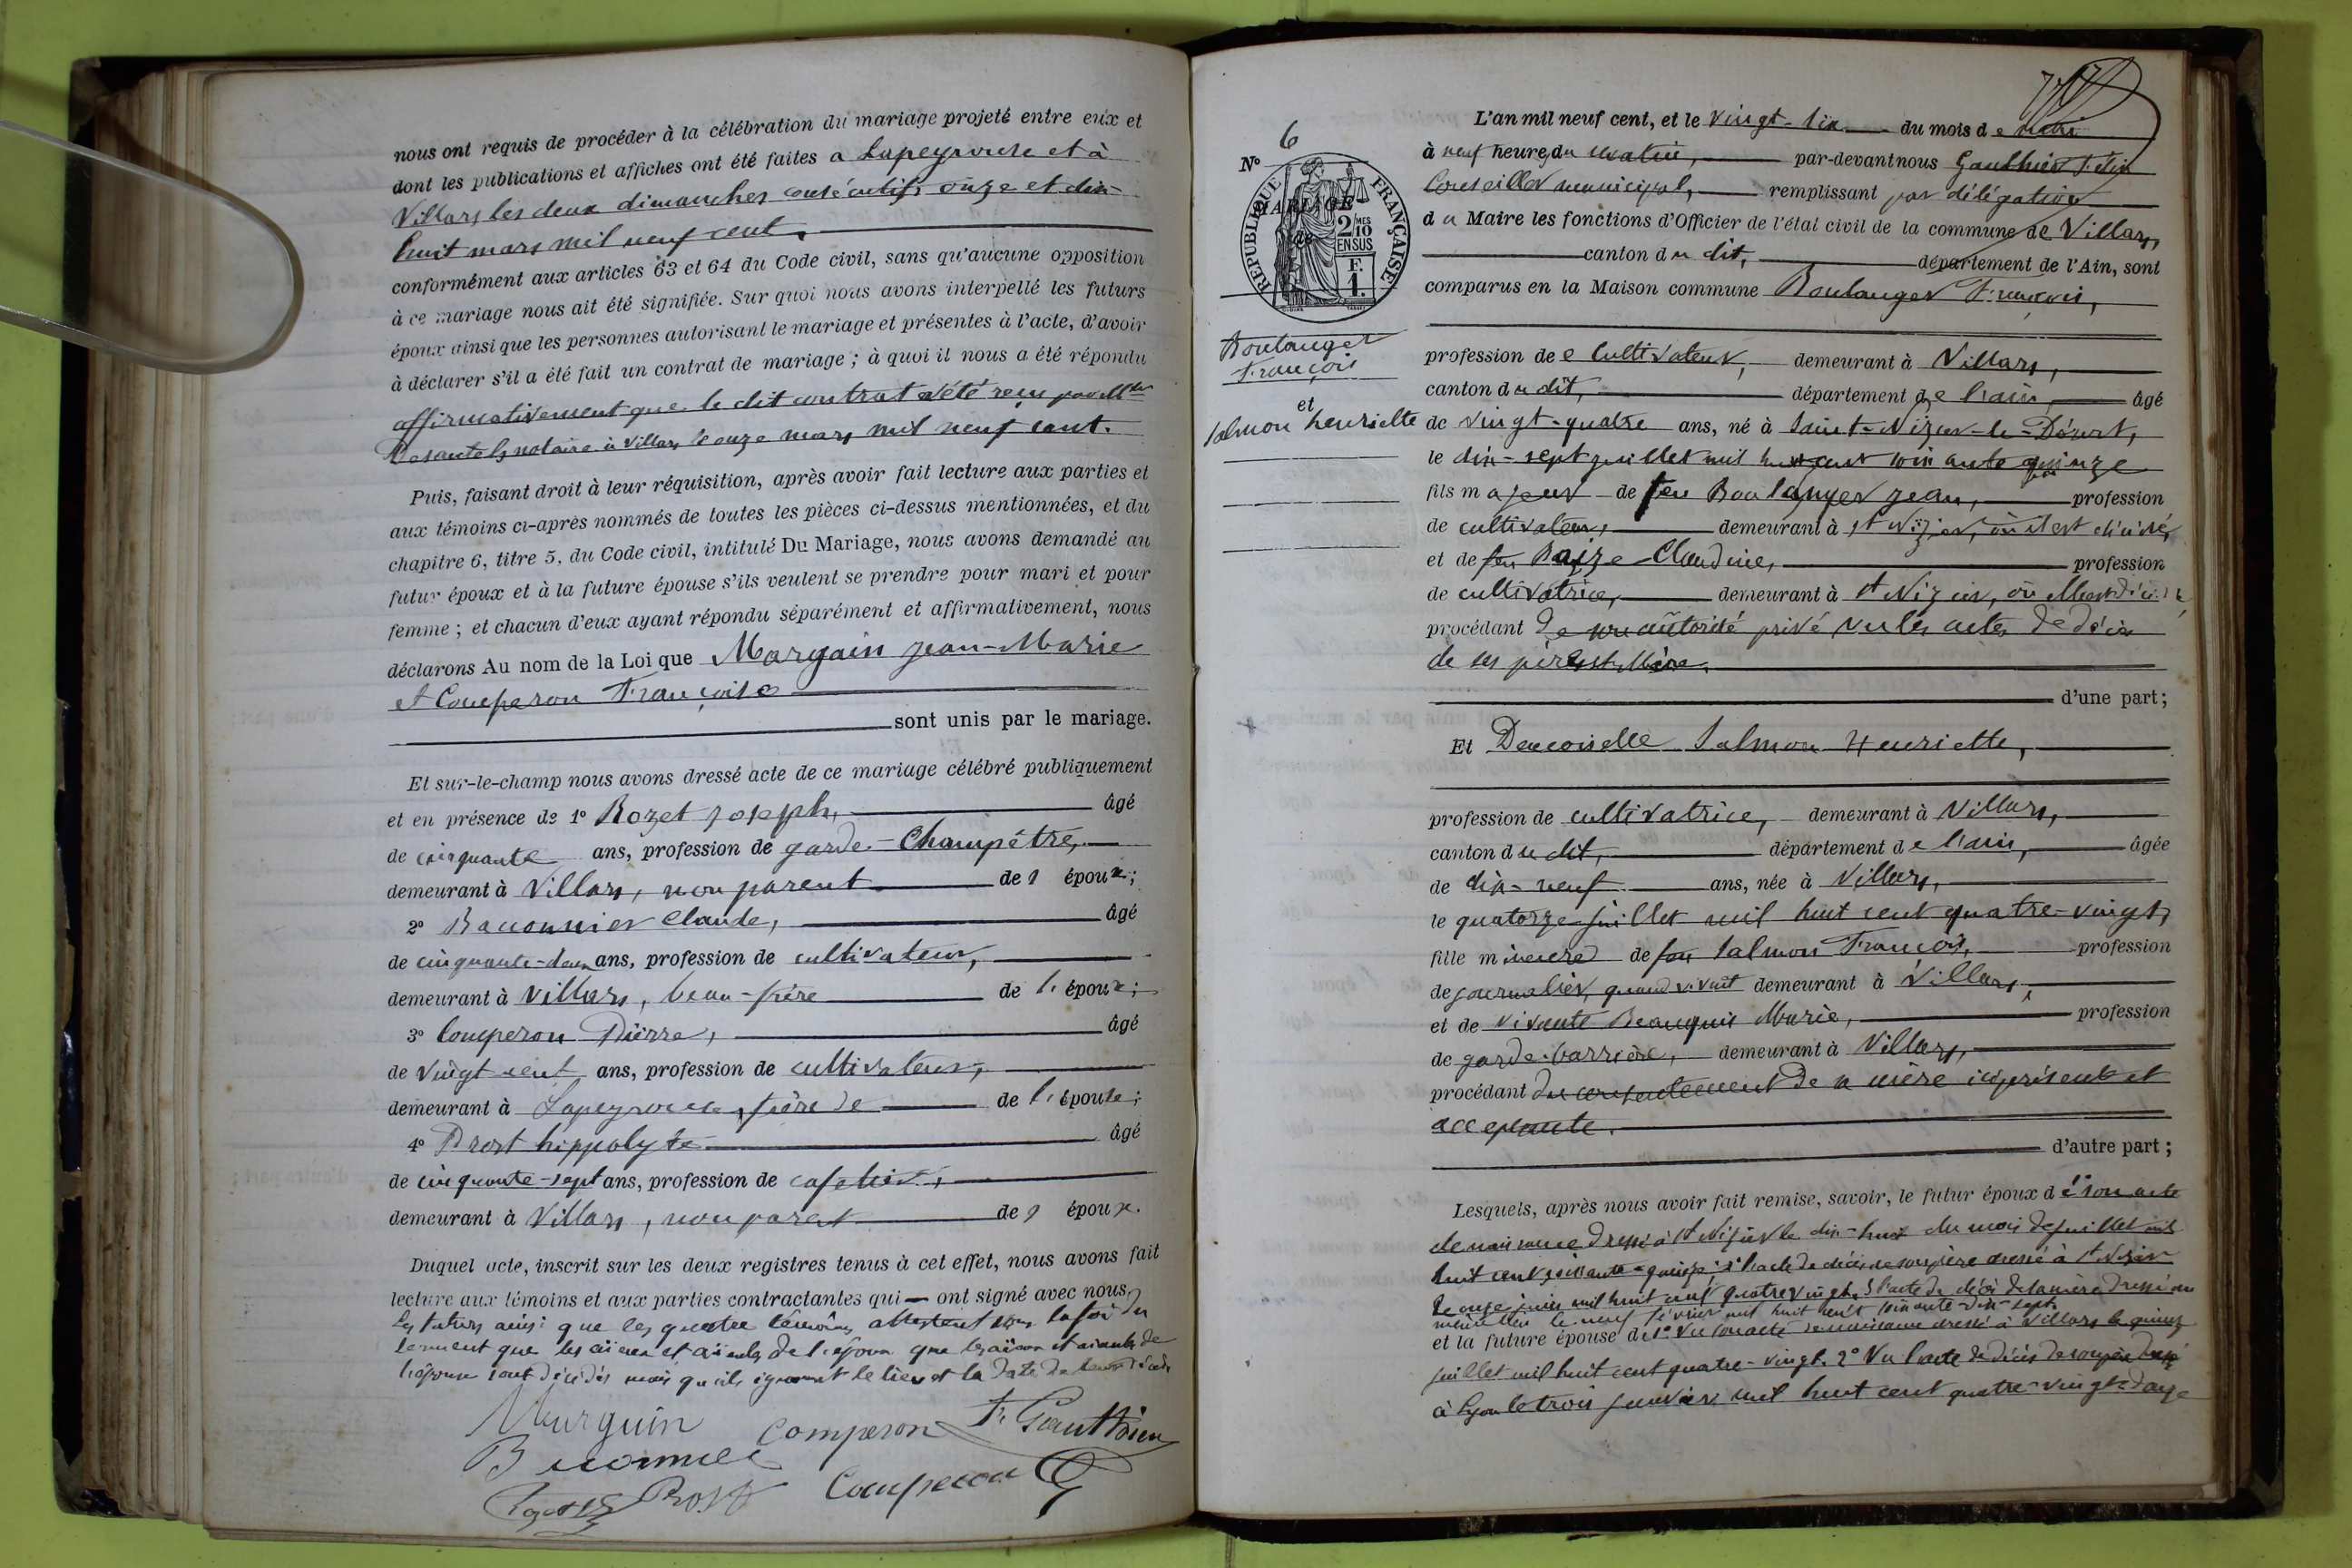 nous ont requis de procéder à la célébration du mariage projeté entre eux et
dont les publications et affiches ont été faites a Lapeyrouse et à
Villars les deux dimanches consécutifs onze et dix-
huit mars mil neuf cent,
conformément aux articles 63 et 64 du Code civil, sans qu'aucune opposition
à ce mariage nous ait été signifiée. Sur quoi nous avons interpellé les futurs
époux ainsi que les personnes autorisant le mariage et présentes à l'acte, d'avoir
à déclarer s'il a été fait un contrat de mariage ; à quoi il nous a été répondu
affirmativement que le dit contrat a été reçu par
notaire à Villars le onze mars mil neuf cent.
Puis, faisant droit à leur réquisition, après avoir fait lecture aux parties et
aux témoins ci-après nommés de toutes les pièces ci-dessus mentionnées, et du
chapitre 6, titre 5, du Code civil, intitulé Du Mariage, nous avons demandé au
futur époux et à la future épouse s'ils veulent se prendre pour mari et pour
femme ; et chacun d'eux ayant répondu séparément et affirmativement, nous
déclarons Au nom de la Loi que Marguin Jean-Marie
et Comperon Françoise
sont unis par le mariage.
Et sur-le-champ nous avons dressé acte de ce mariage célébré publiquement
et en présence de 1° Rozet Joseph, âgé
de cinquante ans, profession de garde-Champêtre,
demeurant à Villars, non parent de l époux ;
2° Baconnier Claude, âgé
de cinquante-deux ans, profession de cultivateur,
demeurant à Villars, beau-frère de l' époux ;
3° Comperon Pierre, âgé
de vingt ans, profession de cultivateur,
demeurant à Lapeyrouse, frère de de l' épouse ;
4° Prost hippolyte âgé
de cinquante-sept ans, profession de cafetier,
demeurant à Villars, non parent de l époux.
Duquel acte, inscrit sur les deux registres tenus à cet effet, nous avons fait
lecture aux témoins et aux parties contractantes qui — ont signé avec nous.
Les futurs ainsi que les quatre témoins attestent sous la foi du
serment que les aieux et aïeules de l'époux que les aïeux et aieules de
l'épouse sont décédés mais qu'ils ignorent le lieu et la date de
Marguin Comperon F. Gauthier
Baconnier
Rozet Prost Comperon
N° 6
RÉPUBLIQUE FRANÇAISE
MARIAGE
de
2 MES
10
EN SUS
F.
1.
Boulanger
François
et
Salmon henriette
L'an mil neuf cent, et le vingt-six du mois d e
à neuf heures du matin, par-devant nous Gauthier Félix
Conseiller municipal, remplissant par délégation
d u Maire les fonctions d'Officier de l'état civil de la commune de Villars,
canton d u dit, département de l'Ain, sont
comparus en la Maison commune Boulanger François,
profession de Cultivateur, demeurant à Villars,
canton d u dit, département de l'ain, âgé
de vingt-quatre ans, né à Saint-Nizier-le-Désert,
le dix-sept juillet mil huit cent soixante quinze
fils majeur de feu Boulanger Jean, profession
de cultivateur, demeurant à St Nizier, où il est décédé,
et de feu Claudine, profession
de cultivatrice, demeurant à St Nizier, où elle est décédée
procédant de son autorité privé vu les actes de décès
de ses père et Mère.
d'une part ;
Et Demoiselle Salmon Henriette,
profession de cultivatrice, demeurant à Villars,
canton d u dit, département de l'ain, âgée
de dix-neuf ans, née à Villars,
le quatorze juillet mil huit cent quatre-vingt,
fille mineure de feu Salmon François, profession
de journalier, quand vivait demeurant à Villars,
et de vivante Beauquis Marie, profession
de garde-barrière, demeurant à Villars,
procédant du consentement de sa mère ici présente et
acceptante.
d'autre part ;
Lesquels, après nous avoir fait remise, savoir, le futur époux d e 1° son acte
de naissance dressé à St Nizier le dix-huit du mois de juillet mil
huit cent soixante-quinze ; 2° l'acte de décès de son père dressé à St Nizier
le onze juin mil huit cent quatre vingt, 3° l'acte de décès de sa mère dressé au
même lieu le neuf février mil huit cent soixante-dix-sept.
et la future épouse de 1° Vu son acte de naissance dressé à Villars le quinze
juillet mil huit cent quatre-vingt. 2° Vu l'acte de décès de son père dressé
à Lyon le trois janvier mil huit cent quatre-vingt-douze